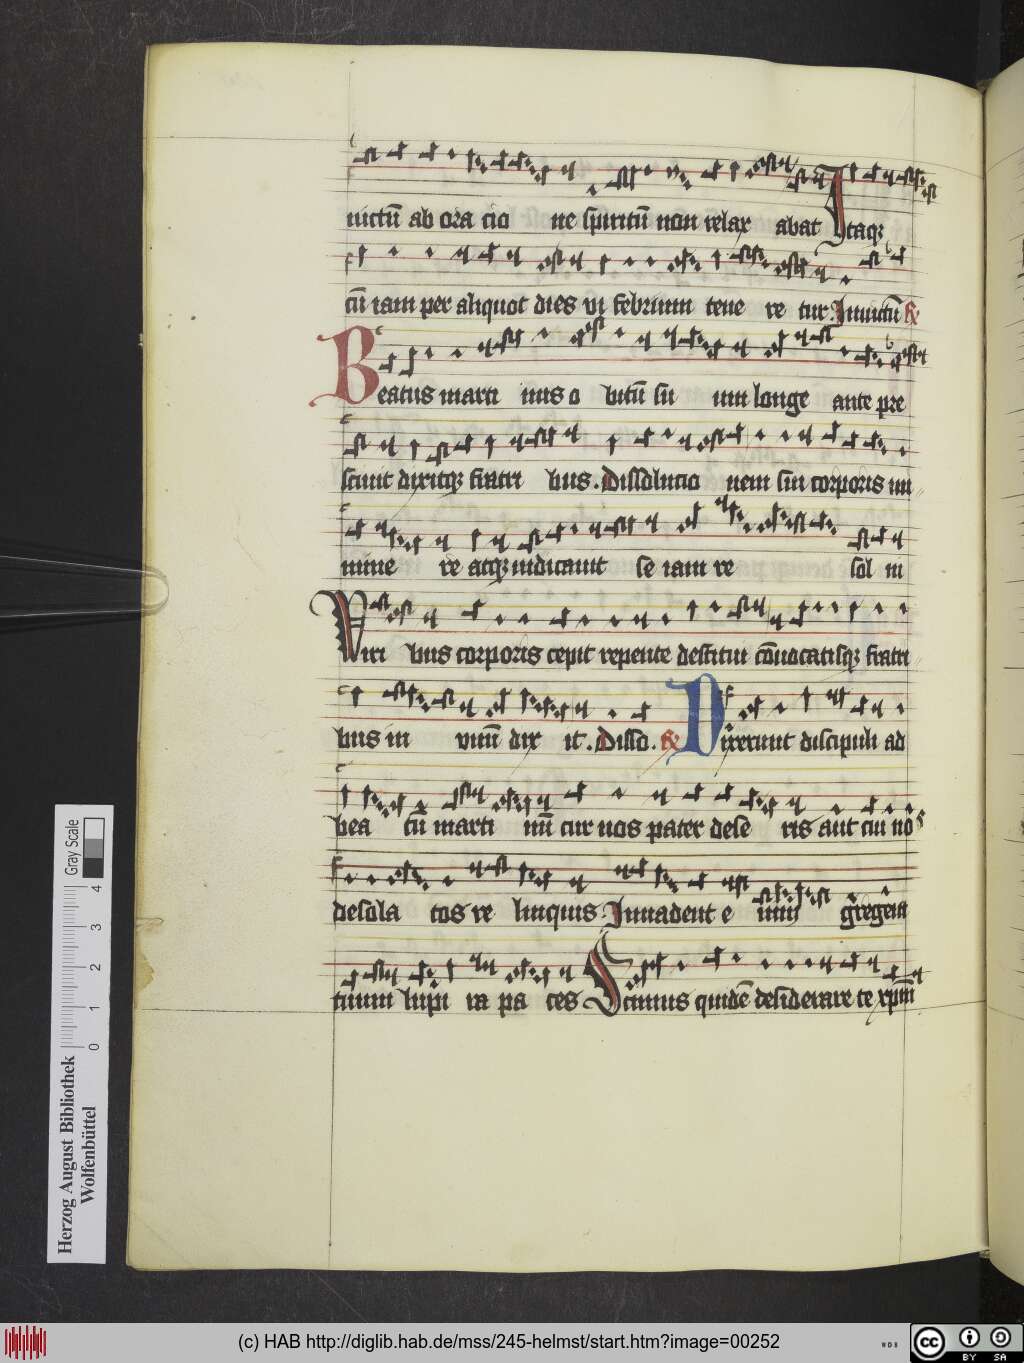 uictū ab ora cio ne spiritū non relax abat Itaqꝫ
cū iam per aliquot dies vi febrium tene re tur. Inuictū
Beatus marti nus o bitū su um longe ante pre
sciuit dixitqꝫ fratri bus. Dissolucio nem sui corporis im
mine re atqꝫ iudicauit se iam re sol ui
Viri bus corporis cepit repente destitui cōuocatisqꝫ fratri
bus in vnū dix it. Disso. Dixerunt discipuli ad
bea tū marti nū cur nos pater dese ris aut cui nos
desola tos re linquis Inuadent e nim gregem
tuum lupi ra pa ces Scimus quidē desiderare te xpm
Herzog August Bibliothek
Wolfenbüttel
Gray Scale
0 1 2 3 4
(c) HAB http://diglib.hab.de/mss/245-helmst/start.htm?image=00252
WDB
cc BY SA